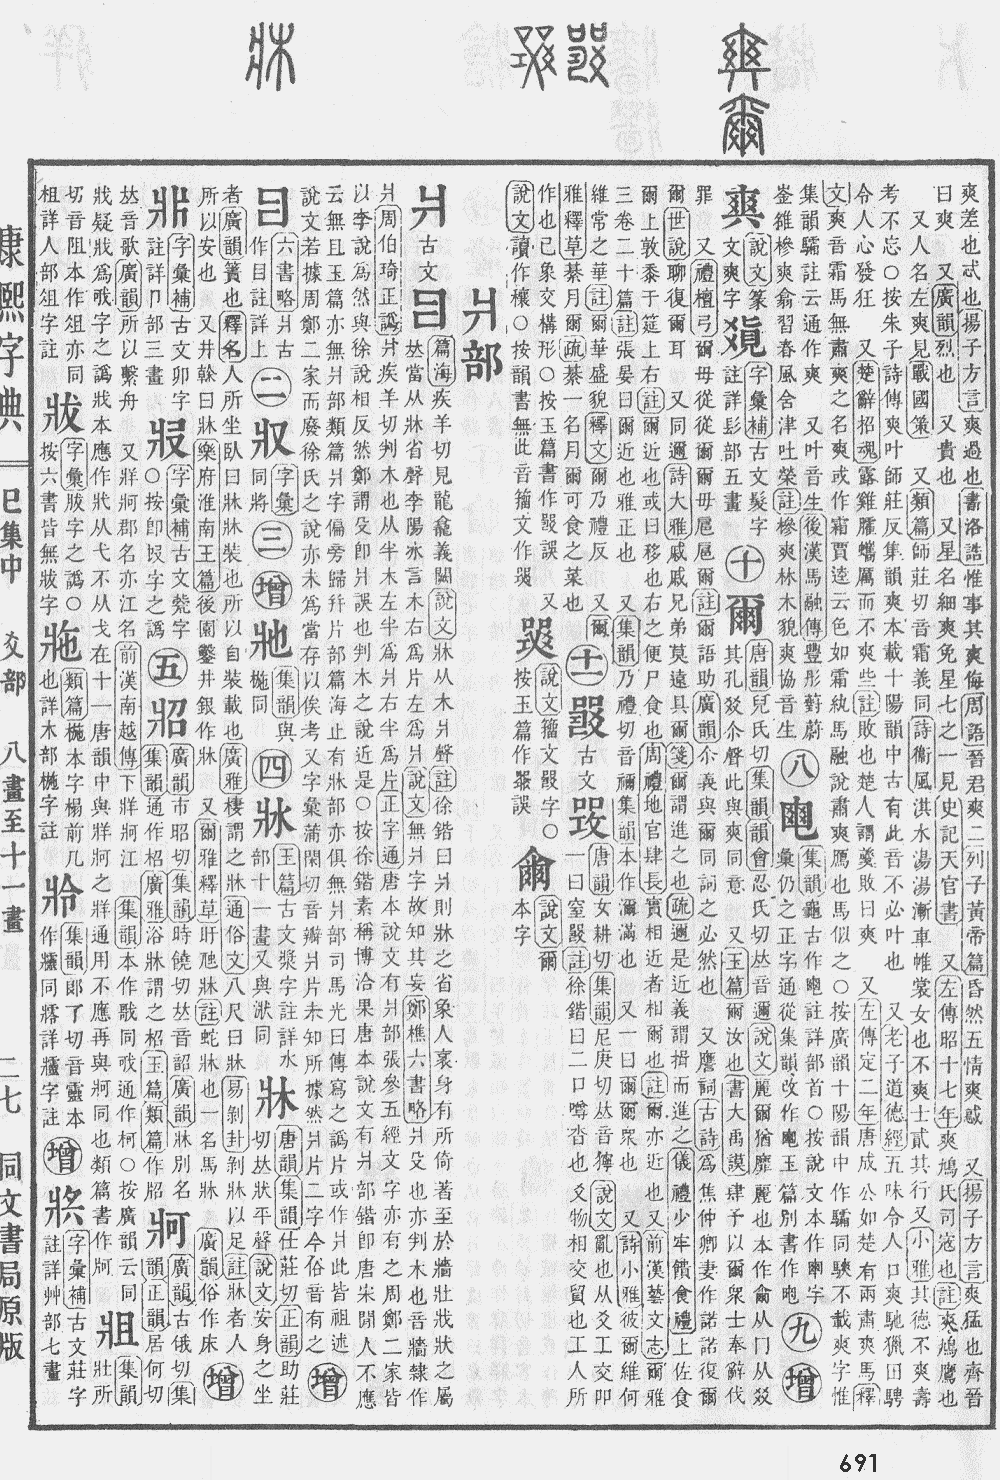 爽差也忒也揚子方言爽過也書洛誥惟事其爽侮周語晉君爽二列子黃帝篇昏然五情爽惑 又揚子方言爽猛也齊晉
曰爽 又廣韻烈也 又貴也 又星名細爽免星七之一見史記天官書 又左傳昭十七年爽鳩氏司寇也註爽鳩鷹也
又人名左爽見戰國策 又類篇師莊切音霜義同詩衞風淇水湯湯漸車帷裳女也不爽士貳其行又小雅其德不爽壽
考不忘○按朱子詩傳爽叶師莊反集韻爽本載十陽韻中古有此音不必叶也 又老子道德經五味令人口爽馳獵田騁
令人心發狂 又楚辭招魂露雞臛蠵厲而不爽些註敗也楚人謂羹敗曰爽 又左傳定二年唐成公如楚有兩肅爽馬釋
文爽音霜馬無肅爽之名爽或作霜賈逵云色如霜紈馬融說肅爽鴈也馬似之○按廣韻十陽韻中作驦同騻不載爽字惟
集韻驦註云通作爽 又叶音生後漢馬融傳豐彤薱蔚
崟雒槮爽翕習春風含津吐榮註槮爽林木貌爽協音生
八
集韻龜古作 註詳部首○按說文本作 字
彙仍之正字通從集韻改作 玉篇別書作
九 增
說文篆
文爽字
字彙補古文髮字
註詳髟部五畫
十
爾
唐韻兒氏切集韻韻會忍氏切𠀤音邇說文麗爾猶靡麗也本作 从冂从㸚
其孔㸚尒聲此與爽同意 又玉篇爾汝也書大禹謨肆予以爾眾士奉辭伐
罪 又禮檀弓爾毋從從爾爾毋扈扈爾註爾語助廣韻尒義與爾同詞之必然也 又譍詞古詩爲焦仲卿妻作諾諾復爾
爾世說聊復爾耳 又同邇詩大雅戚戚兄弟莫遠具爾箋爾謂進之也疏邇是近義謂揖而進之儀禮少牢饋食禮上佐食
爾上敦黍于筵上右註爾近也或曰移也右之便尸食也周禮地官肆長實相近者相爾也註爾亦近也又前漢藝文志爾雅
三卷二十篇註張晏曰爾近也雅正也 又集韻乃禮切音禰集韻本作濔滿也 又一曰爾爾眾也 又詩小雅彼爾維何
維常之華註爾華盛貌釋文爾乃禮反 又爾
雅釋草綦月爾疏綦一名月爾可食之菜也
十一
古文
唐韻女耕切集韻尼庚切𠀤音獰說文亂也从爻工交吅
一曰窒 註徐鍇曰二口噂沓也爻物相交質也工人所
作也已象交構形○按玉篇書作 誤 又
說文讀作穰○按韻書無此音籀文作
說文籀文 字○
按玉篇作 誤
說文爾
本字
爿部
爿
古文
篇海疾羊切見龍龕義闕說文牀从木爿聲註徐鍇曰爿則牀之省象人衺身有所倚著至於牆壯戕狀之屬
𠀤當从牀省聲李陽冰言木右爲片左爲爿說文無爿字故知其妄鄭樵六書略爿殳也亦判木也音牆隸作
爿周伯琦正譌爿疾羊切判木也从半木左半爲爿右半爲片左正字通唐本說文有爿部張參五經文字亦有之周鄭二家皆
以李說爲然與徐說相反然鄭謂殳卽爿誤也判木之說近是○按徐鍇素稱博洽果唐本說文有爿部鍇卽唐宋閒人不應
云無且玉篇亦無爿部類篇爿字偏旁歸片部篇海止有牀部亦俱無爿部司馬光曰傳寫之譌爿或作爿此皆祖述
說文若據周鄭二家而廢徐氏之說亦未爲當存以俟考又字彙蒲閑切音瓣爿片未知所據然爿片二字今俗音有之
增
六書略爿古
作目註詳上
二
字彙
同將
三 增
集韻與
椸同
四
玉篇古文漿字註詳水
部十一畫又與 同
牀
唐韻集韻仕莊切正韻助莊
切𠀤狀平聲說文安身之坐
者廣韻簀也釋名人所坐臥曰牀牀裝也所以自裝載也廣雅棲謂之牀通俗文八尺曰牀易剝卦剝牀以足註牀者人
所以安也 又井榦曰牀樂府淮南王篇後園鑿井銀作牀 又爾雅釋草盱虺牀註蛇牀也一名馬牀 廣韻俗作床
增
字彙補古文卯字
註詳卩部三畫
字彙補古文 字
○按卽 字之譌
五
牊
廣韻巿昭切集韻時饒切𠀤音韶廣韻牀別名
集韻通作柖廣雅浴牀謂之柖玉篇類篇作
牁
廣韻集韻古俄切集
韻正韻居何切
𠀤音歌廣韻所以繫舟 又牂牁郡名亦江名前漢南越傳下牂牁江 集韻本作歌同戨通作柯○按廣韻云同
戕疑戕爲戨字之譌戕本應作牀从弋不从戈在十一唐韻中與牂牁之牂通用不應再與牁同也類篇書作
集韻
壯所
切音阻本作俎亦同
祖詳人部俎字註
字彙 字之譌○
按六書皆無 字
類篇椸本字榻前几
也詳木部椸字註
集韻郎丁切音靈本
作 同 詳 字註
增
字彙補古文莊字
註詳艸部七畫
康熙字典 巳集中 爻部 八畫至十一畫 二七 同文書局原版
691